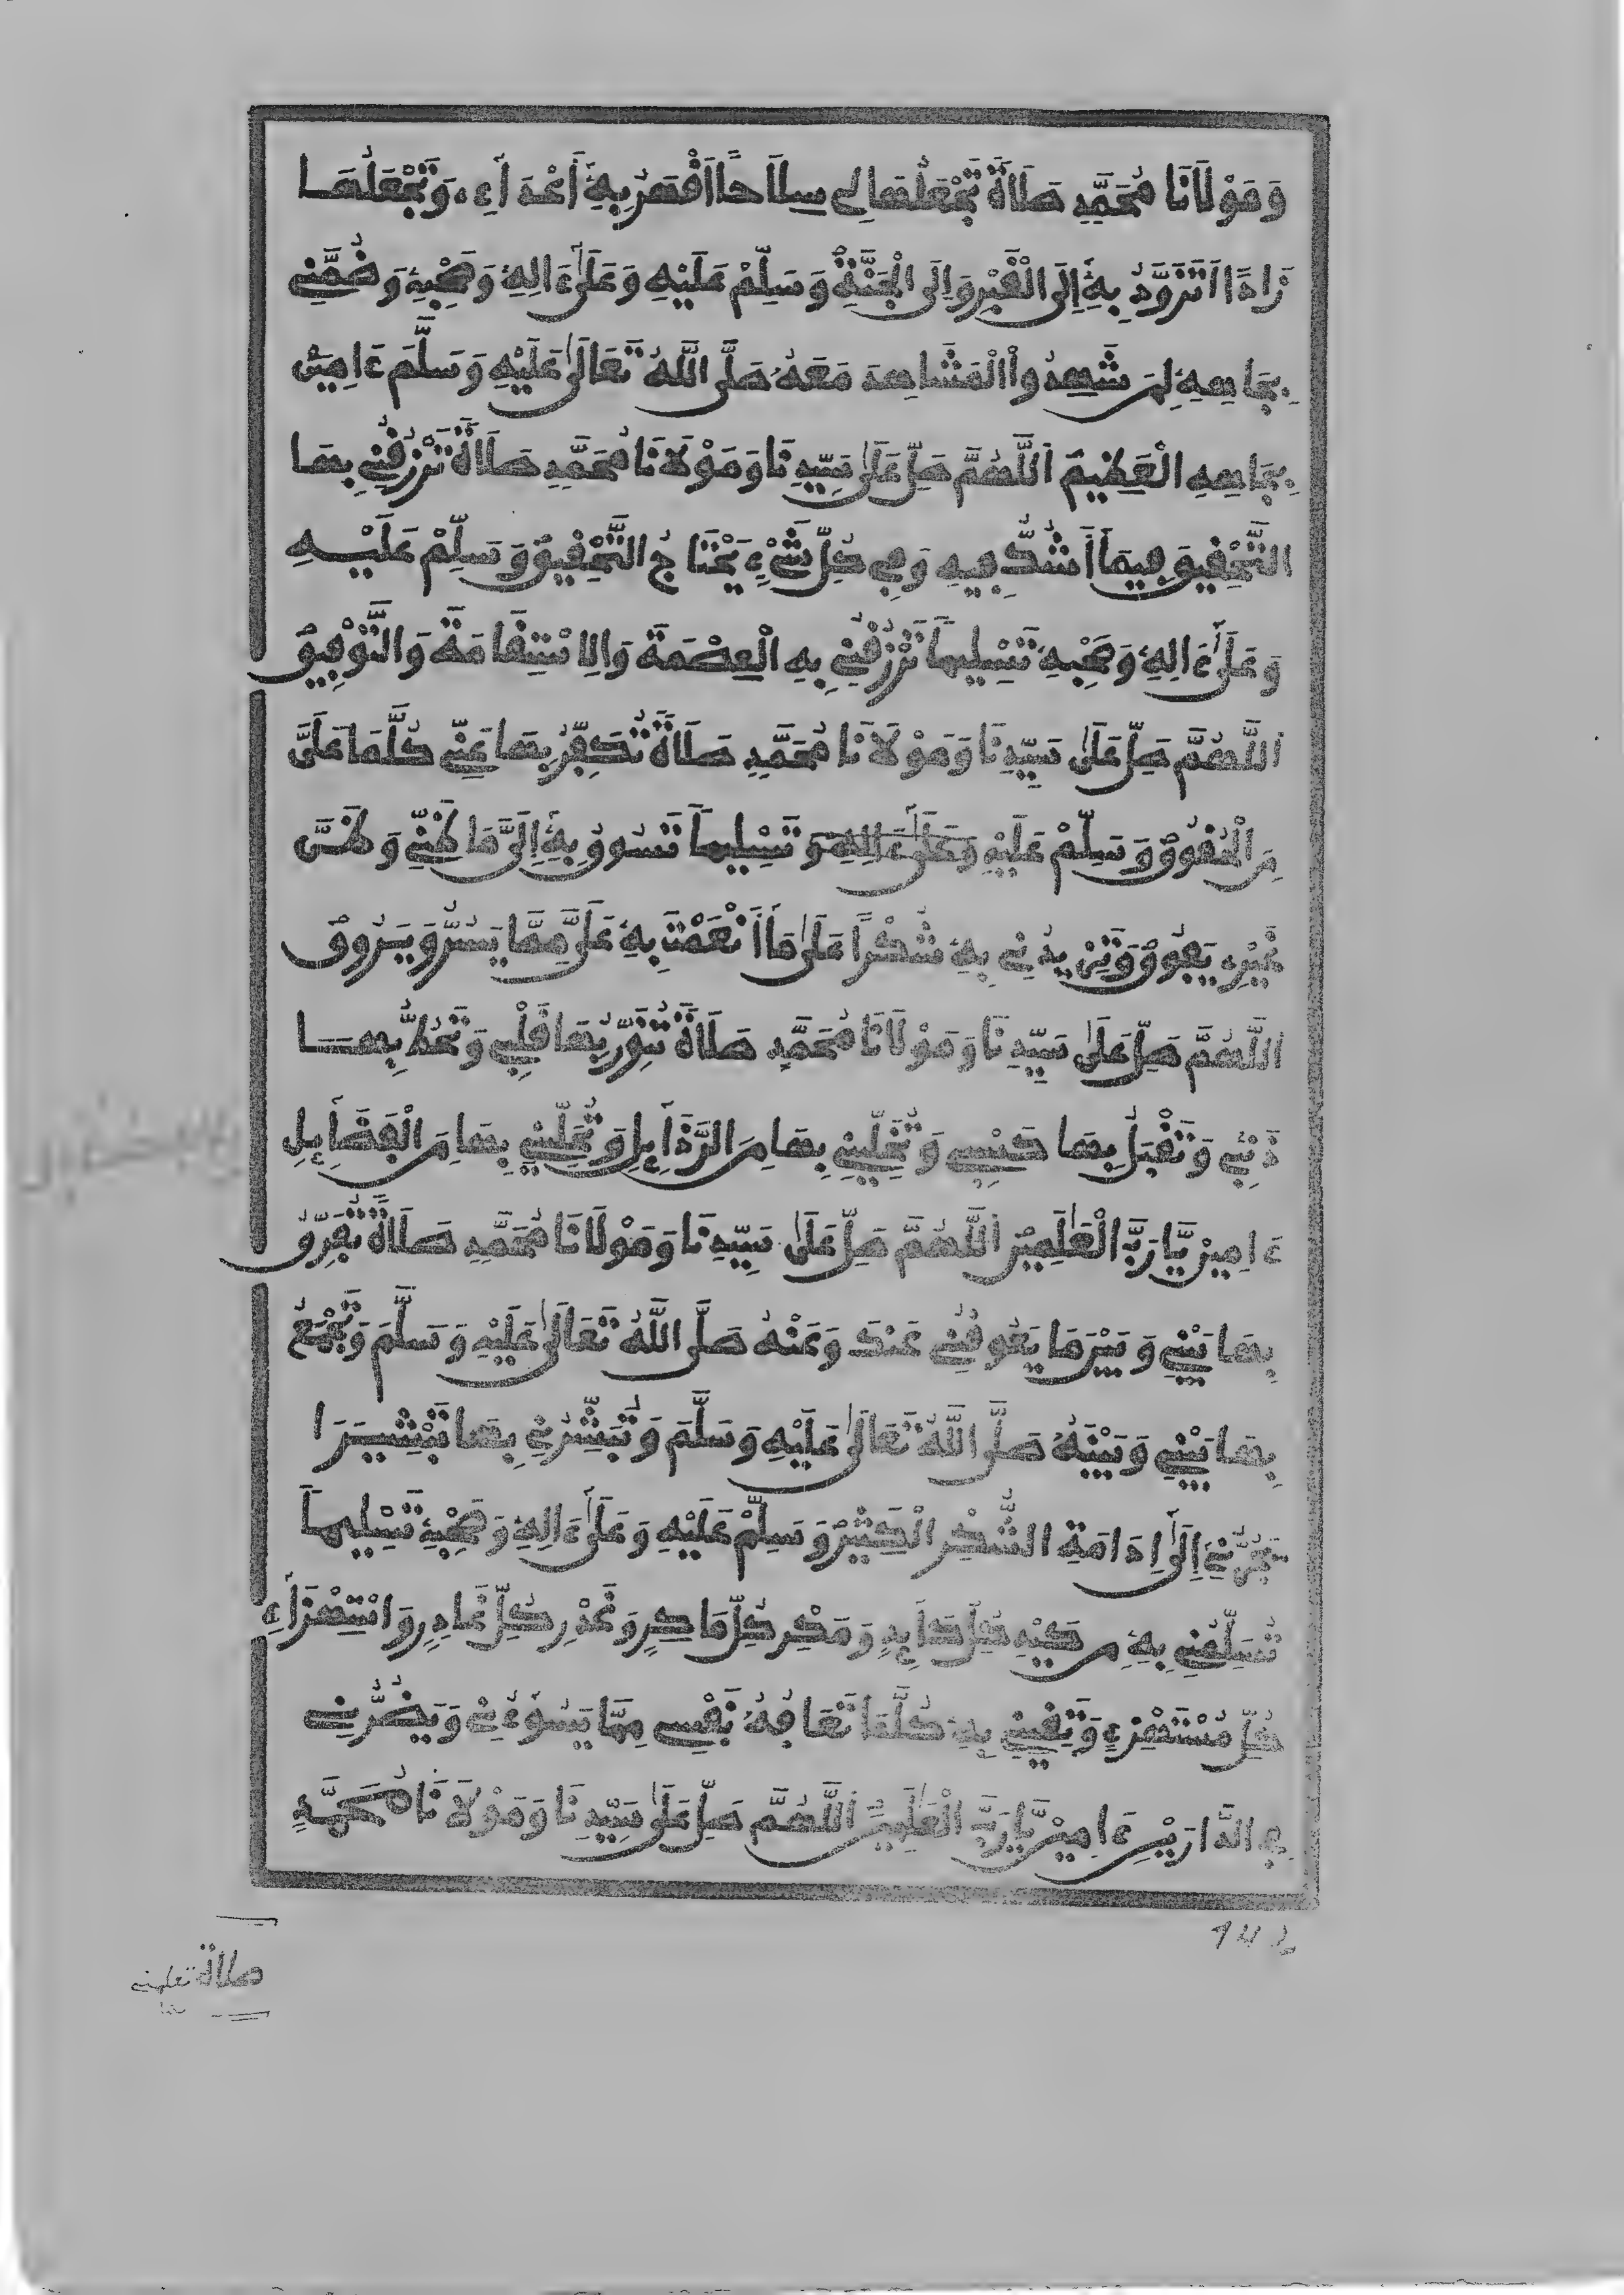 وَمَوْلَانَا مُحَمَّدٍ صَلَاةً تَجْعَلُهَا لِي سِلَاحًا أَقْهَرُ بِهِ أَعْدَآءِ، وَتَجْعَلُهَا
زَادًا أَتَزَوَّدُ بِهِ إِلَى الْقَبْرِ وَإِلَى الْجَنَّةِ وَسَلِّمْ عَلَيْهِ وَعَلَىٰ ءَالِهِ وَصَحْبِهِ وَضُمَّنِي
بِجَاهِهِ لِمَن شَهِدُواْ الْمَشَاهِدَ مَعَهُ صَلَّى اللَّهُ تَعَالَىٰ عَلَيْهِ وَسَلَّمَ ءَامِينَ
بِجَاهِهِ الْعَظِيمِ اللَّهُمَّ صَلِّ عَلَىٰ سَيِّدِنَا وَمَوْلَانَا مُحَمَّدٍ صَلَاةً تَرْزُقُنِي بِهَا
التَّحْقِيقَ فِيمَا أَشُكُّ فِيهِ وَفِي كُلِّ شَيْءٍ يَحْتَاجُ التَّحْقِيقَ وَسَلِّمْ عَلَيْهِ
وَعَلَىٰ ءَالِهِ وَصَحْبِهِ تَسْلِيمًا تَرْزُقُنِي بِهِ الْعِصْمَةَ وَالِاسْتِقَامَةَ وَالتَّوْفِيقَ
اللَّهُمَّ صَلِّ عَلَىٰ سَيِّدِنَا وَمَوْلَانَا مُحَمَّدٍ صَلَاةً تُكَفِّرُ بِهَا عَنِّي كُلَّمَا عَلَيَّ
مِنَ الْحُقُوقِ وَسَلِّمْ عَلَيْهِ وَعَلَىٰ ءَالِهِ وَ تَسْلِيمًا تَسُوقُ بِهِ إِلَيَّ مَا لَمْ
غَيْرِ، يَفُوقُ وَتَزِيدُنِي بِهِ شُكْرًا عَلَىٰ مَا أَنْعَمْتَ بِهِ عَلَيَّ مِمَّا يَسُرُّ وَيَرُوقُ
اللَّهُمَّ صَلِّ عَلَىٰ سَيِّدِنَا وَمَوْلَانَا مُحَمَّدٍ صَلَاةً تُنَوِّرُ بِهَا قَلْبِي وَ بِهَا
ذَنْبِي وَتَقْبَلُ بِهَا كَسْبِي وَتُخَلِّينِي بِهَا مِنَ الرَّذَآئِلِ وَتُحَلِّينِي بِهَا مِنَ الْفَضَآئِلِ
ءَامِينَ يَّا رَبَّ الْعَٰلَمِينَ اللَّهُمَّ صَلِّ عَلَىٰ سَيِّدِنَا وَمَوْلَانَا مُحَمَّدٍ صَلَاةً تُفَرِّقُ
بِهَا بَيْنِي وَبَيْنَ مَا يَعُوقُنِي عَنكَ وَعَنْهُ صَلَّى اللَّهُ تَعَالَىٰ عَلَيْهِ وَسَلَّمَ وَتَجْمَعُ
بِهَا بَيْنِي وَبَيْنَهُ صَلَّى اللَّهُ تَعَالَىٰ عَلَيْهِ وَسَلَّمَ وَتُبَشِّرُنِي بِهَا تَبْشِيرًا
يَجُرُّنِي إِلَىٰ إِدَامَةِ الشُّكْرِ الْكَثِيرِ وَسَلِّمْ عَلَيْهِ وَعَلَىٰ ءَالِهِ وَصَحْبِهِ تَسْلِيمًا
تُسَلِّمُنِي بِهِ مِن كَيْدِ كُلِّ كَآئِدٍ وَمَكْرِ كُلِّ مَاكِرٍ وَغَدْرِ كُلِّ غَادِرٍ وَاسْتِهْزَآءِ
كُلِّ مُسْتَهْزِءٍ وَتَقِينِي بِهِ كُلَّمَا تَعَافُهُ نَفْسِي مِمَّا يَسُوءُنِي وَيَضُرُّنِي
فِي الدَّارَيْنِ ءَامِينَ يَّا رَبَّ الْعَٰلَمِينَ اللَّهُمَّ صَلِّ عَلَىٰ سَيِّدِنَا وَمَوْلَانَا مُحَمَّدٍ
صلاة